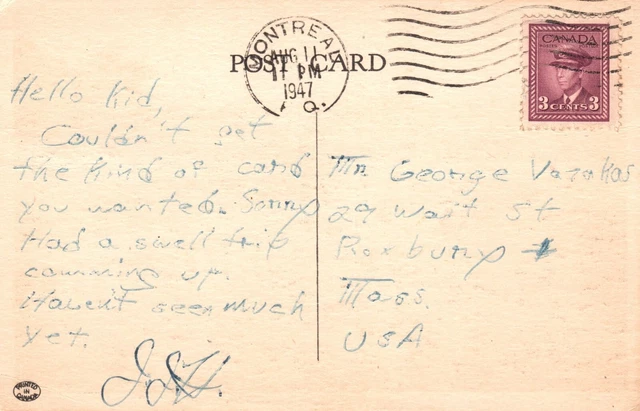 POST CARD
MONTREAL
AUG 11
PM
1947
P.Q.
CANADA
3 CENTS 3
Hello Kid,
Couldn't get
the kind of card
you wanted. Sorry
Had a swell trip
comming up.
Haven't seen much
yet.
Mr. George
29 Wait St
Roxbury
Mass.
USA
PRINTED
IN
CANADA